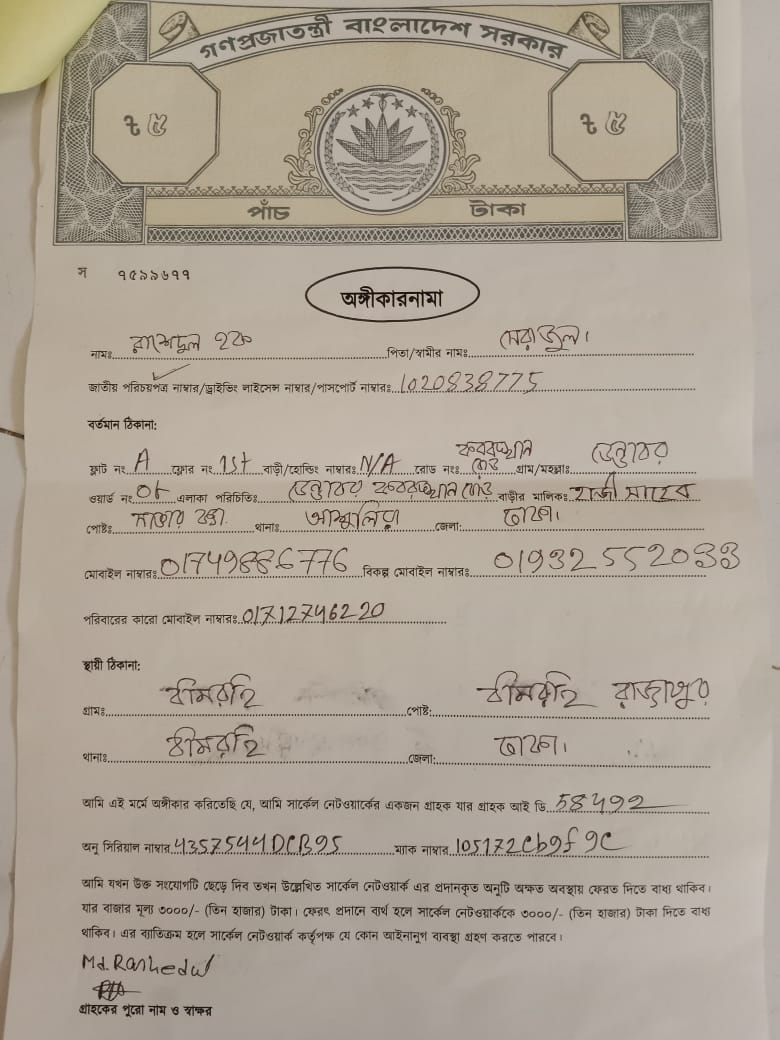 গণপ্রজাতন্ত্রী বাংলাদেশ সরকার
৳ ৫ ৳ ৫
পাঁচ টাকা
স ৭৫৯৯৬৭৭
অঙ্গীকারনামা
নামঃ রাশেদুল হক পিতা/স্বামীর নামঃ মেরাজুল।
জাতীয় পরিচয়পত্র নাম্বার/ড্রাইভিং লাইসেন্স নাম্বার/পাসপোর্ট নাম্বারঃ 1020838775
বর্তমান ঠিকানা:
ফ্লাট নং A ফ্লোর নং 1st বাড়ী/হোল্ডিং নাম্বারঃ N/A রোড নংঃ কবরস্থান রোড গ্রাম/মহল্লাঃ ডেন্ডাবর
ওয়ার্ড নং এলাকা পরিচিতিঃ ডেন্ডাবর কবরস্থান রোড বাড়ীর মালিকঃ হাজী সাহেব
পোষ্টঃ সাভার থানাঃ আশুলিয়া জেলা: ঢাকা।
মোবাইল নাম্বারঃ 01749886776 বিকল্প মোবাইল নাম্বারঃ 01932552033
পরিবারের কারো মোবাইল নাম্বারঃ 01712746220
স্থায়ী ঠিকানা:
গ্রামঃ পোষ্ট:
থানাঃ জেলা: ঢাকা।
আমি এই মর্মে অঙ্গীকার করিতেছি যে, আমি সার্কেল নেটওয়ার্কের একজন গ্রাহক যার গ্রাহক আই ডি 58492
অনু সিরিয়াল নাম্বার 4357544DCB95 ম্যাক নাম্বার 105172Cb9f9C
আমি যখন উক্ত সংযোগটি ছেড়ে দিব তখন উল্লেখিত সার্কেল নেটওয়ার্ক এর প্রদানকৃত অনুটি অক্ষত অবস্থায় ফেরত দিতে বাধ্য থাকিব।
যার বাজার মূল্য ৩০০০/- (তিন হাজার) টাকা। ফেরৎ প্রদানে ব্যর্থ হলে সার্কেল নেটওয়ার্ককে ৩০০০/- (তিন হাজার) টাকা দিতে বাধ্য
থাকিব। এর ব্যতিক্রম হলে সার্কেল নেটওয়ার্ক কর্তৃপক্ষ যে কোন আইনানুগ ব্যবস্থা গ্রহণ করতে পারবে।
Md. Rashedul
গ্রাহকের পুরো নাম ও স্বাক্ষর